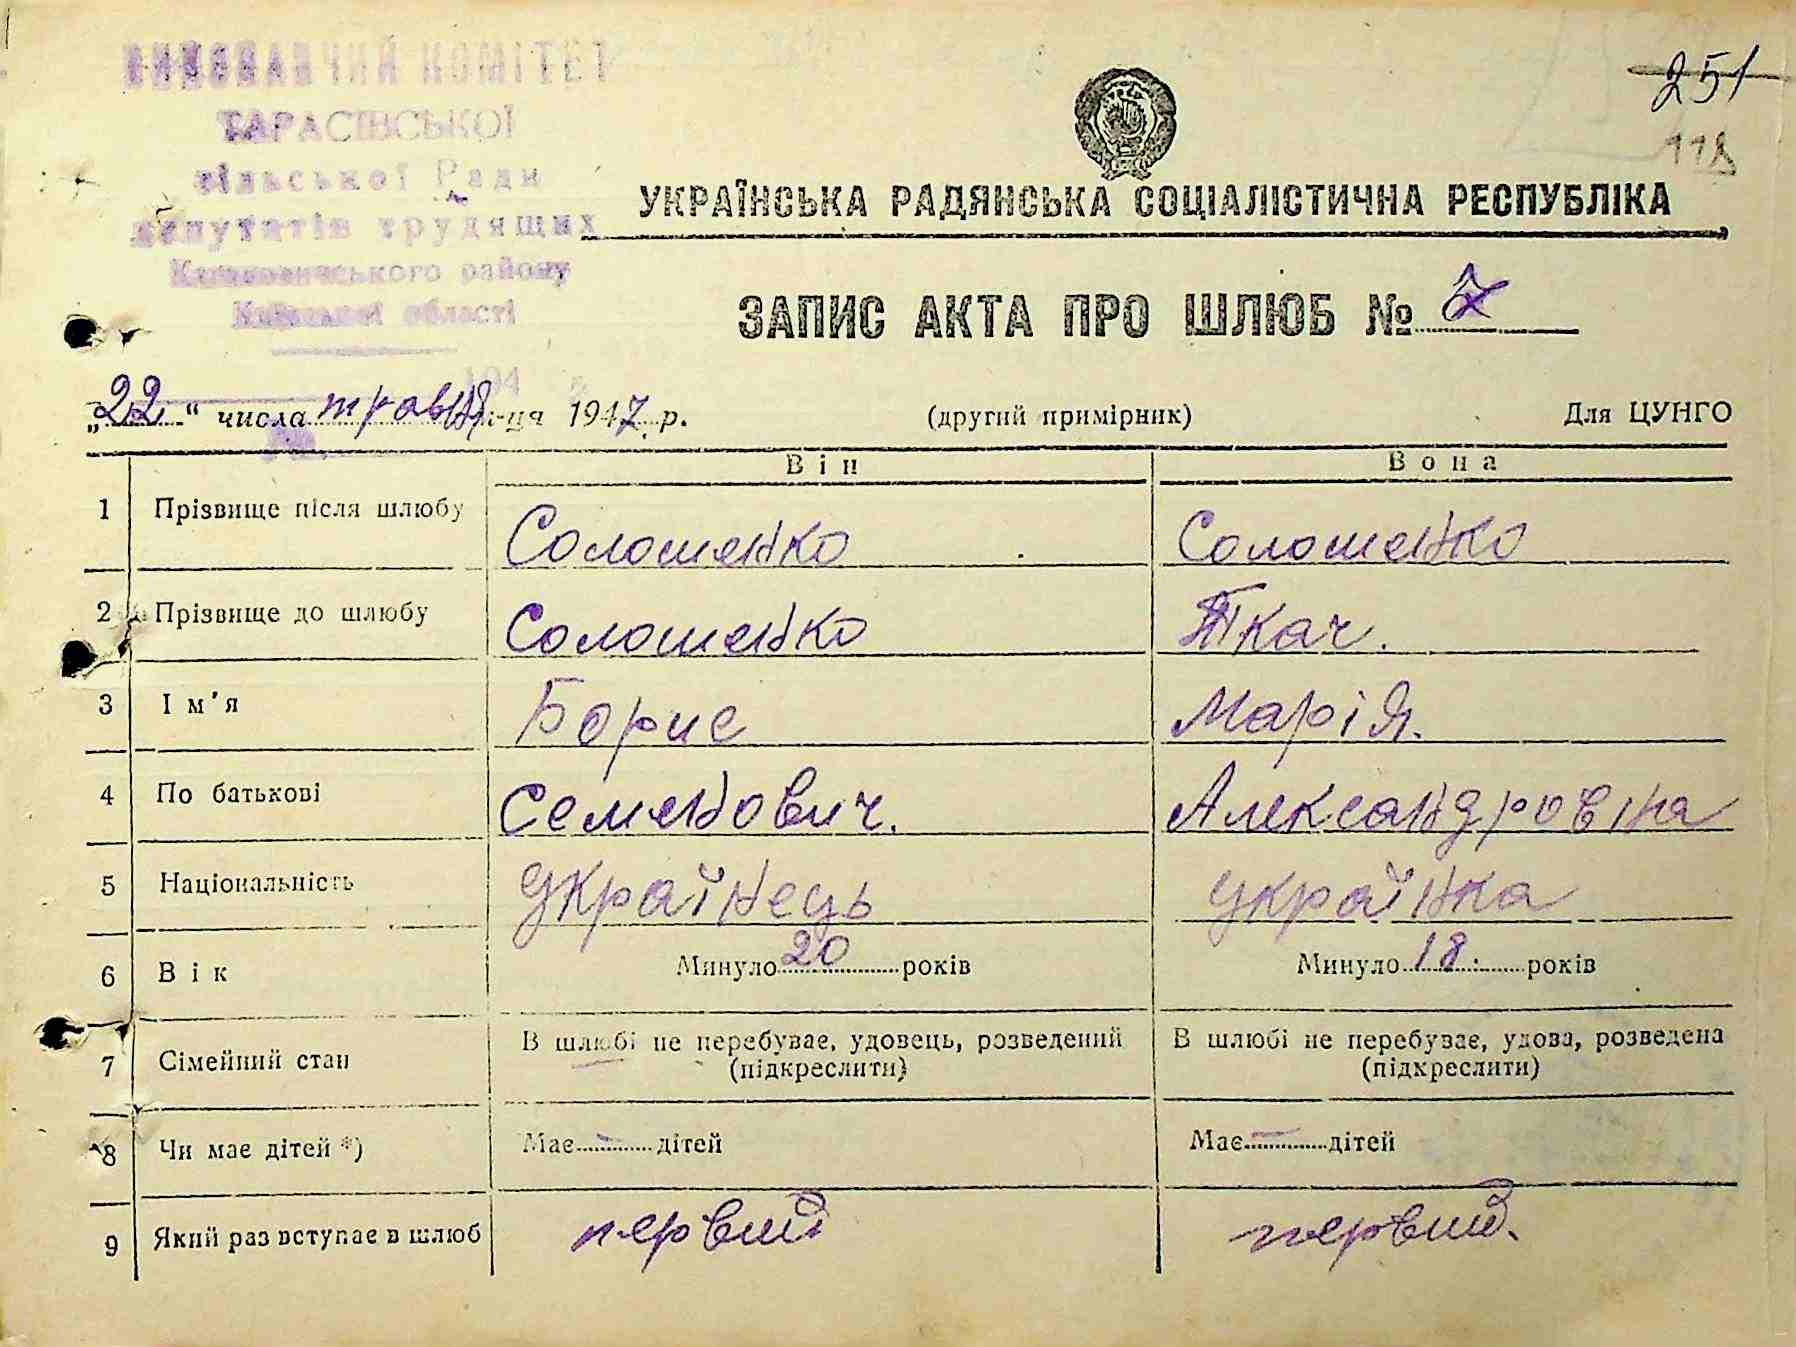 ВИКОНАВЧИЙ КОМІТЕТ
ТАРАСІВСЬКОЇ
сільської Ради
депутатів трудящих
району
Київської області
194
251
118
УКРАЇНСЬКА РАДЯНСЬКА СОЦІАЛІСТИЧНА РЕСПУБЛІКА
ЗАПИС АКТА ПРО ШЛЮБ № 7
„22“ числа травня м-ця 1947 р. (другий примірник) Для ЦУНГО
Він Вона
1 Прізвище після шлюбу Солошенко Солошенко
2 Прізвище до шлюбу Солошенко Ткач.
3 Ім'я Борис Марія.
4 По батькові Семенович. Александровіна
5 Національність українець українка
6 Вік Минуло 20 років Минуло 18 років
7 Сімейний стан В шлюбі не перебуває, удовець, розведений (підкреслити) В шлюбі не перебуває, удова, розведена (підкреслити)
8 Чи має дітей *) Має — дітей Має — дітей
9 Який раз вступає в шлюб первий первий.